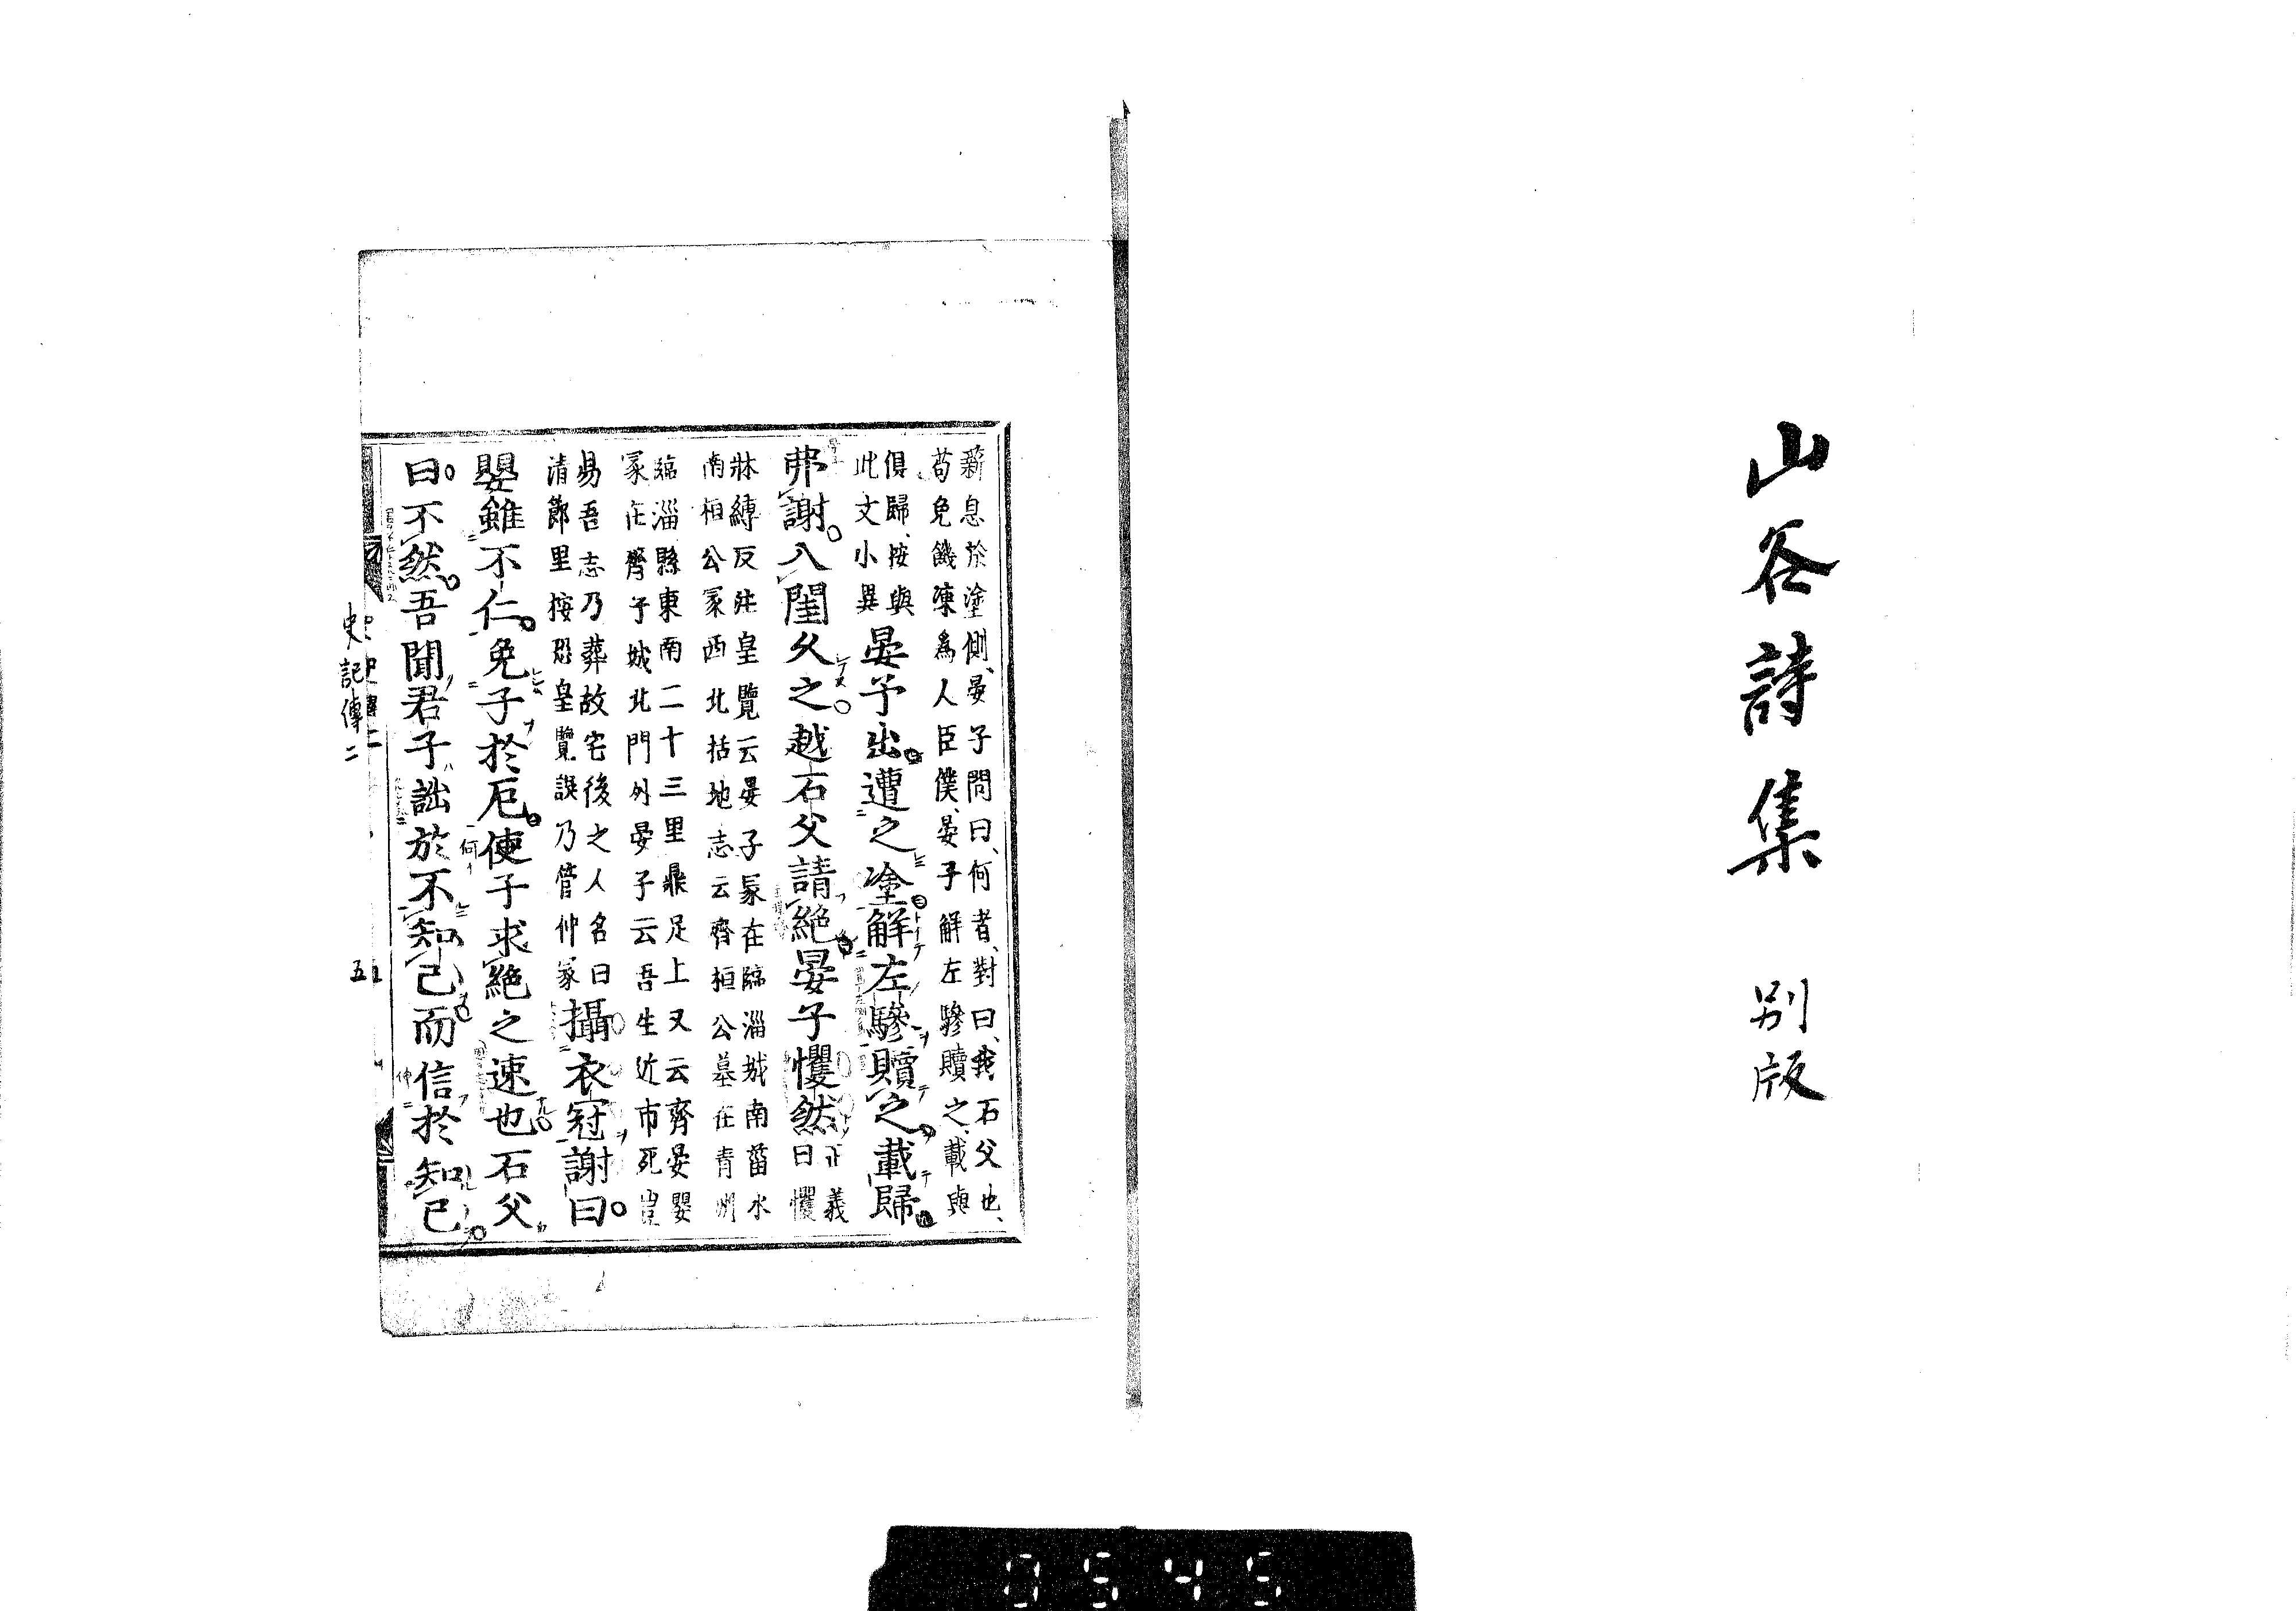 山谷詩集 別版
新息於塗側、晏子問曰、何者、對曰、我石父也、
苟免饑凍爲人臣僕、晏子解左驂贖之、載與
俱歸、按與
此文小異
晏子出遭之塗解左驂贖之載歸
弗謝入閨久之越石父請絶晏子懼然
正義
曰懼
牀縛反 皇覽云晏子冢在臨淄城南菑水
南桓公冢西北括地志云齊桓公墓在青州
臨淄縣東南二十三里鼎足上又云齊晏嬰
冢在齊子城北門外晏子云吾生近市死豈
易吾志乃葬故宅後之人名曰
清節里按恐皇覽誤乃管仲冢
攝衣冠謝曰
嬰雖不仁免子於厄何子求絶之速也石父
曰不然吾聞君子詘於不知己而信於知己
史記傳二
五
0545